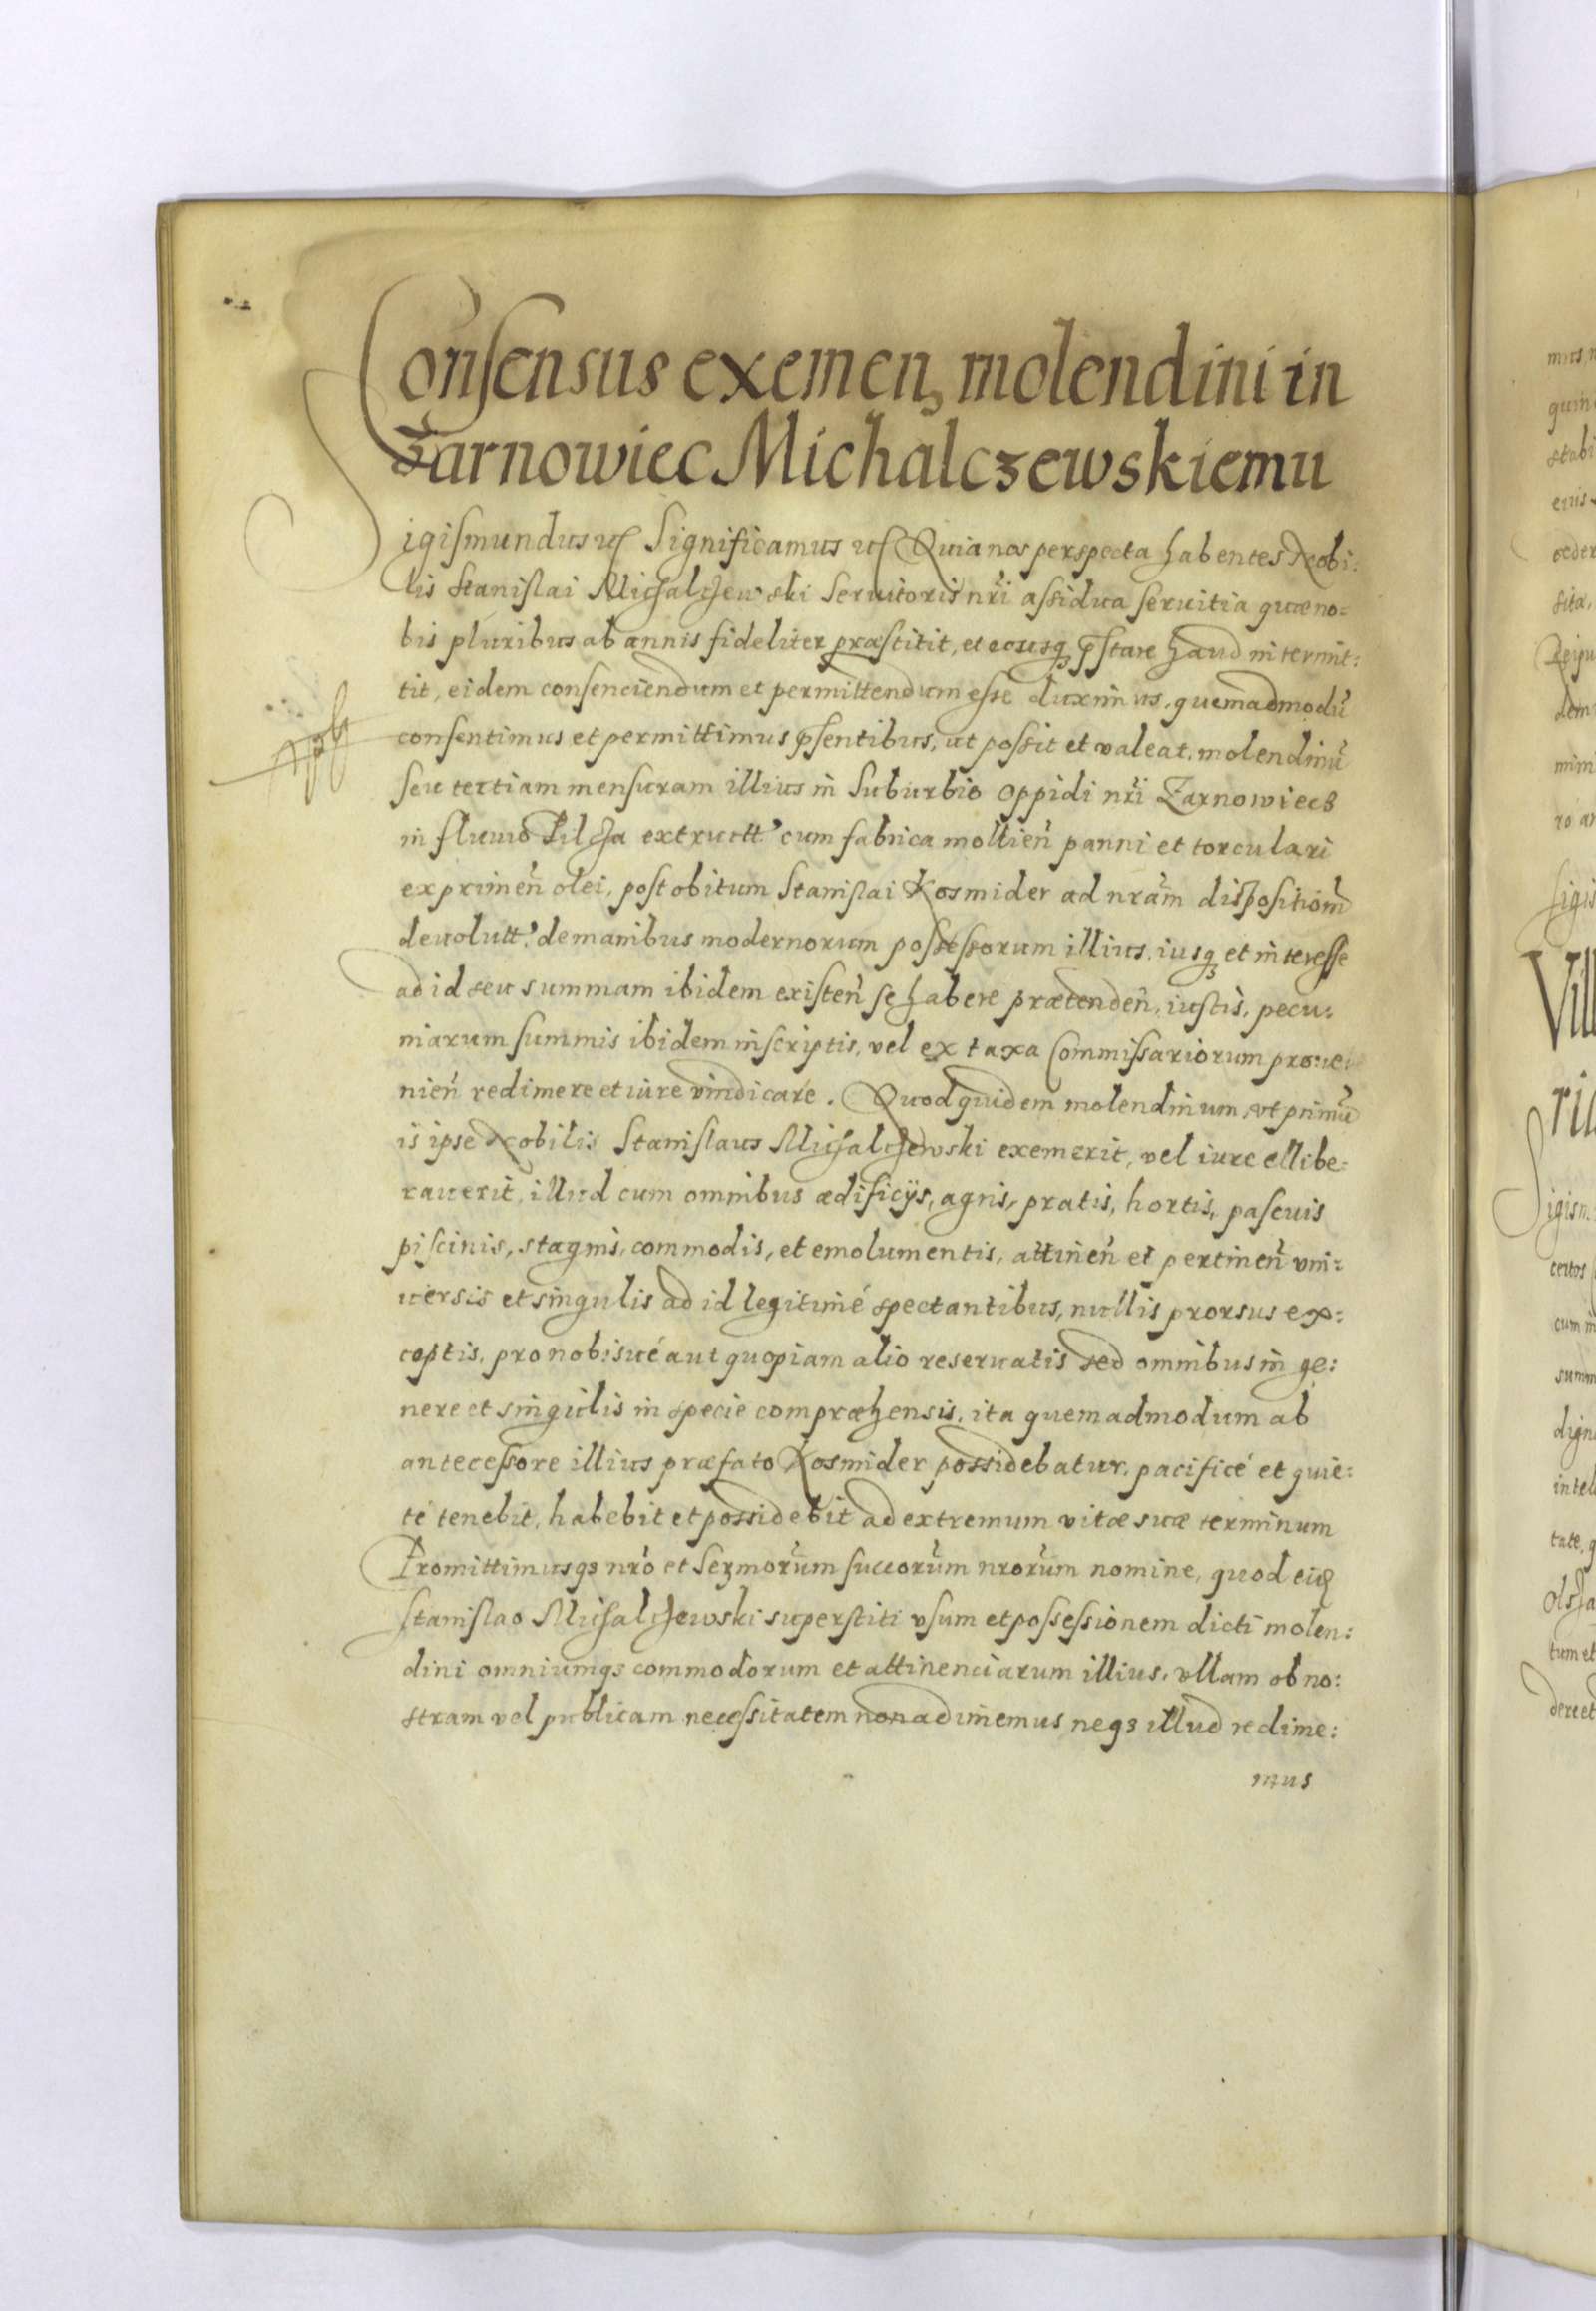 Consensus exemen̄ molendini in
Żarnowiec Michalczewskiemu
Sigismundus etc Significamus etc Quia nos perspecta habentes Nobi:
lis Stanislai Michalczewski Seruitoris nr̄i assidua seruitia quæ no=
bis pluribus ab annis fideliter præstitit, et eousq p̄stare haud intermit:
tit, eidem consenciendum et permittendum esse duximus, quemadmodū
consentimus et permittimus p̄sentibus, ut possit et valeat, molendinū
seu tertiam mensuram illius in Suburbio oppidi nr̄i Zarnowiecz
in fluuio Pilcza extructt' cum fabrica mollien̄ panni et torculari
exprimen̄ olei, post obitum Stanislai Kosmider ad nrām dispositiōm
deuolutt' de manibus modernorum possessorum illius, iusq et interesse
ad id seu summam ibidem existen̄ se habere prætenden̄, iustis, pecu:
niarum summis ibidem inscriptis, vel ex taxa Commissariorum proue:
nien̄ redimere et iure vindicare. Quod quidem molendinum, ut primū
is ipse Nobilis Stanislaus Michalczewski exemerit, vel iure ellibe:
rauerit, illud cum omnibus ædificijs, agris, pratis, hortis, pascuis
piscinis, stagnis, commodis, et emolumentis, attinen̄ et pertinen̄ vni:
uersis et singulis ad id legitimé spectantibus, nullis prorsus ex:
ceptis, pro nobisué aut quopiam alio reseruatis sed omnibus in ge:
nere et singulis in specie compræhensis, ita quemadmodum ab
antecessore illius præfato Kosmider possidebatur, pacificé et quie:
té tenebit, habebit et possidebit ad extremum vitæ suæ terminum
Promittimusqз nr̄o et Serm̄orum succōrum nrōrum nomine, quod eiđ
Stanislao Michalczewski superstiti vsum et possessionem dicti molen:
dini omniumqз commodorum et attinenciarum illius, vllam ob no:
stram vel publicam necessitatem non adimemus neqз illud redime:
mus